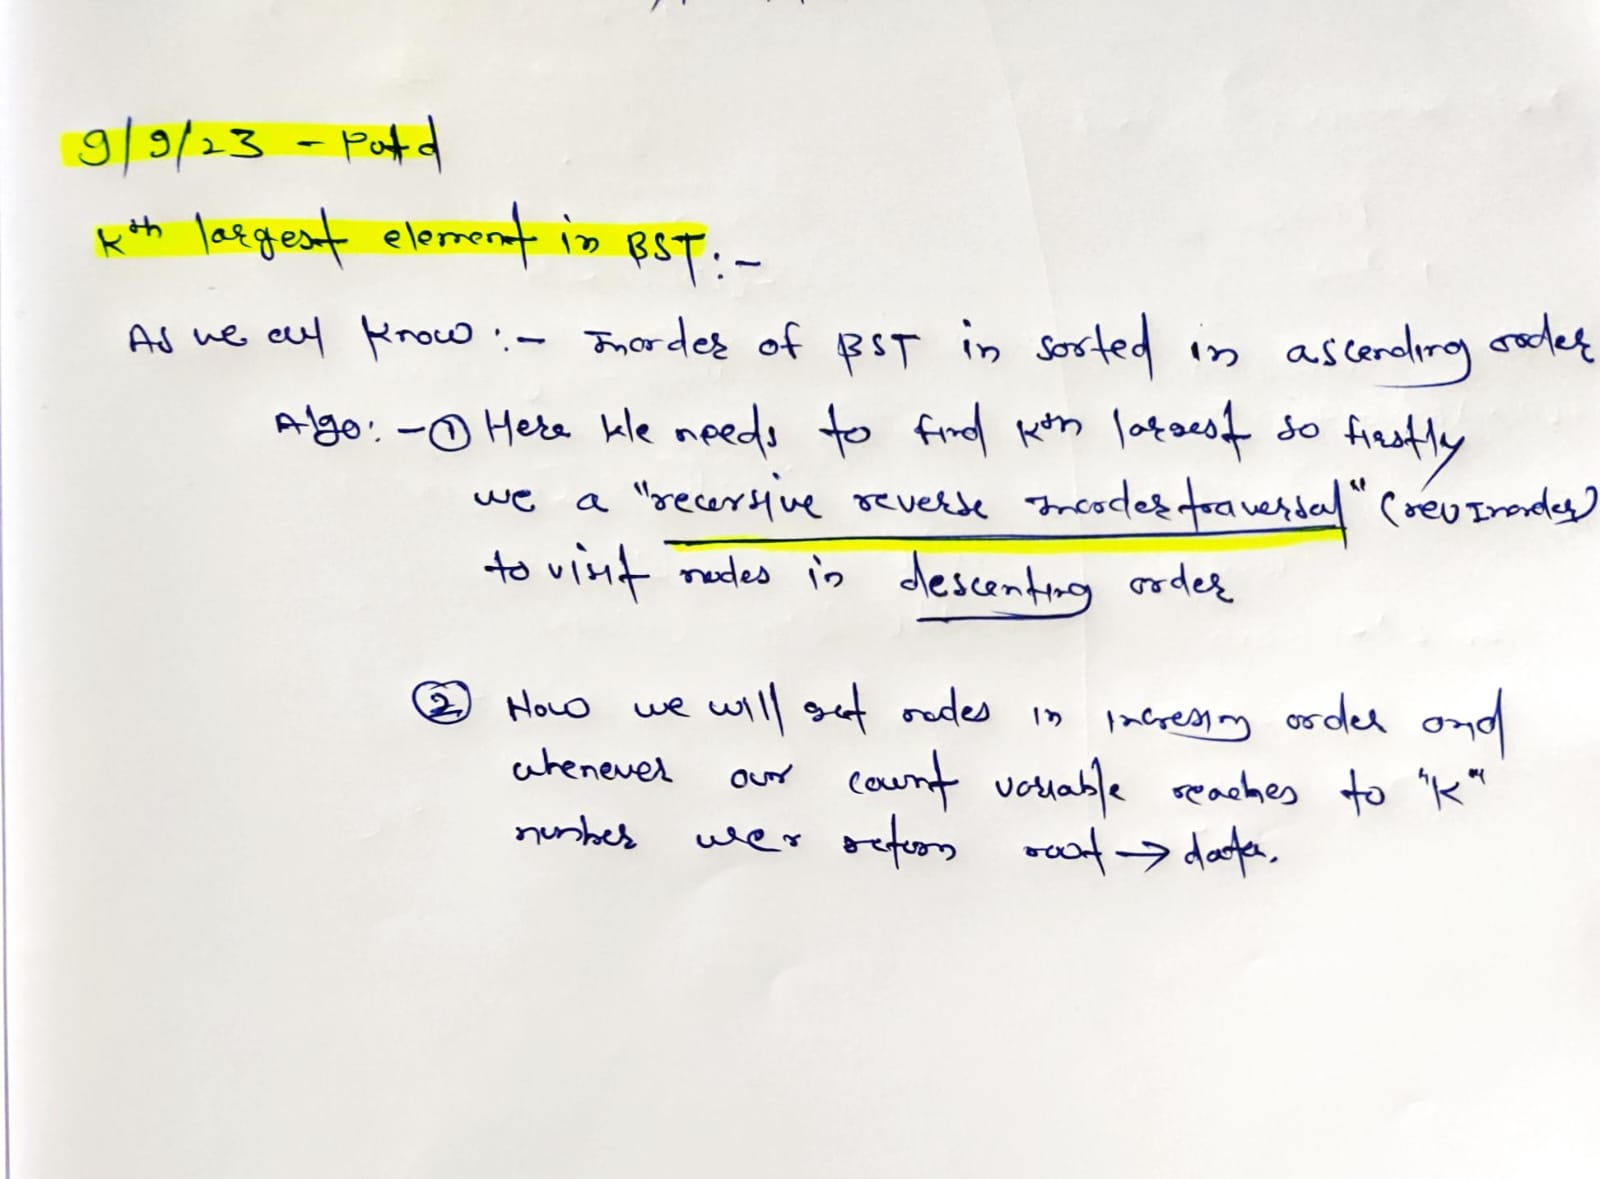 9/9/23 - Potd
Kth largest element in BST:-
As we all know :- Inorder of BST in sorted in ascending order
Algo: - ① Here We needs to find Kth largest so firstly
we a "recersive reverse Inorder traversal" (revInorder)
to visit nodes in descenting order
② Now we will get nodes in incresing order and
whenever our count variable reaches to "K"
number return root → data.